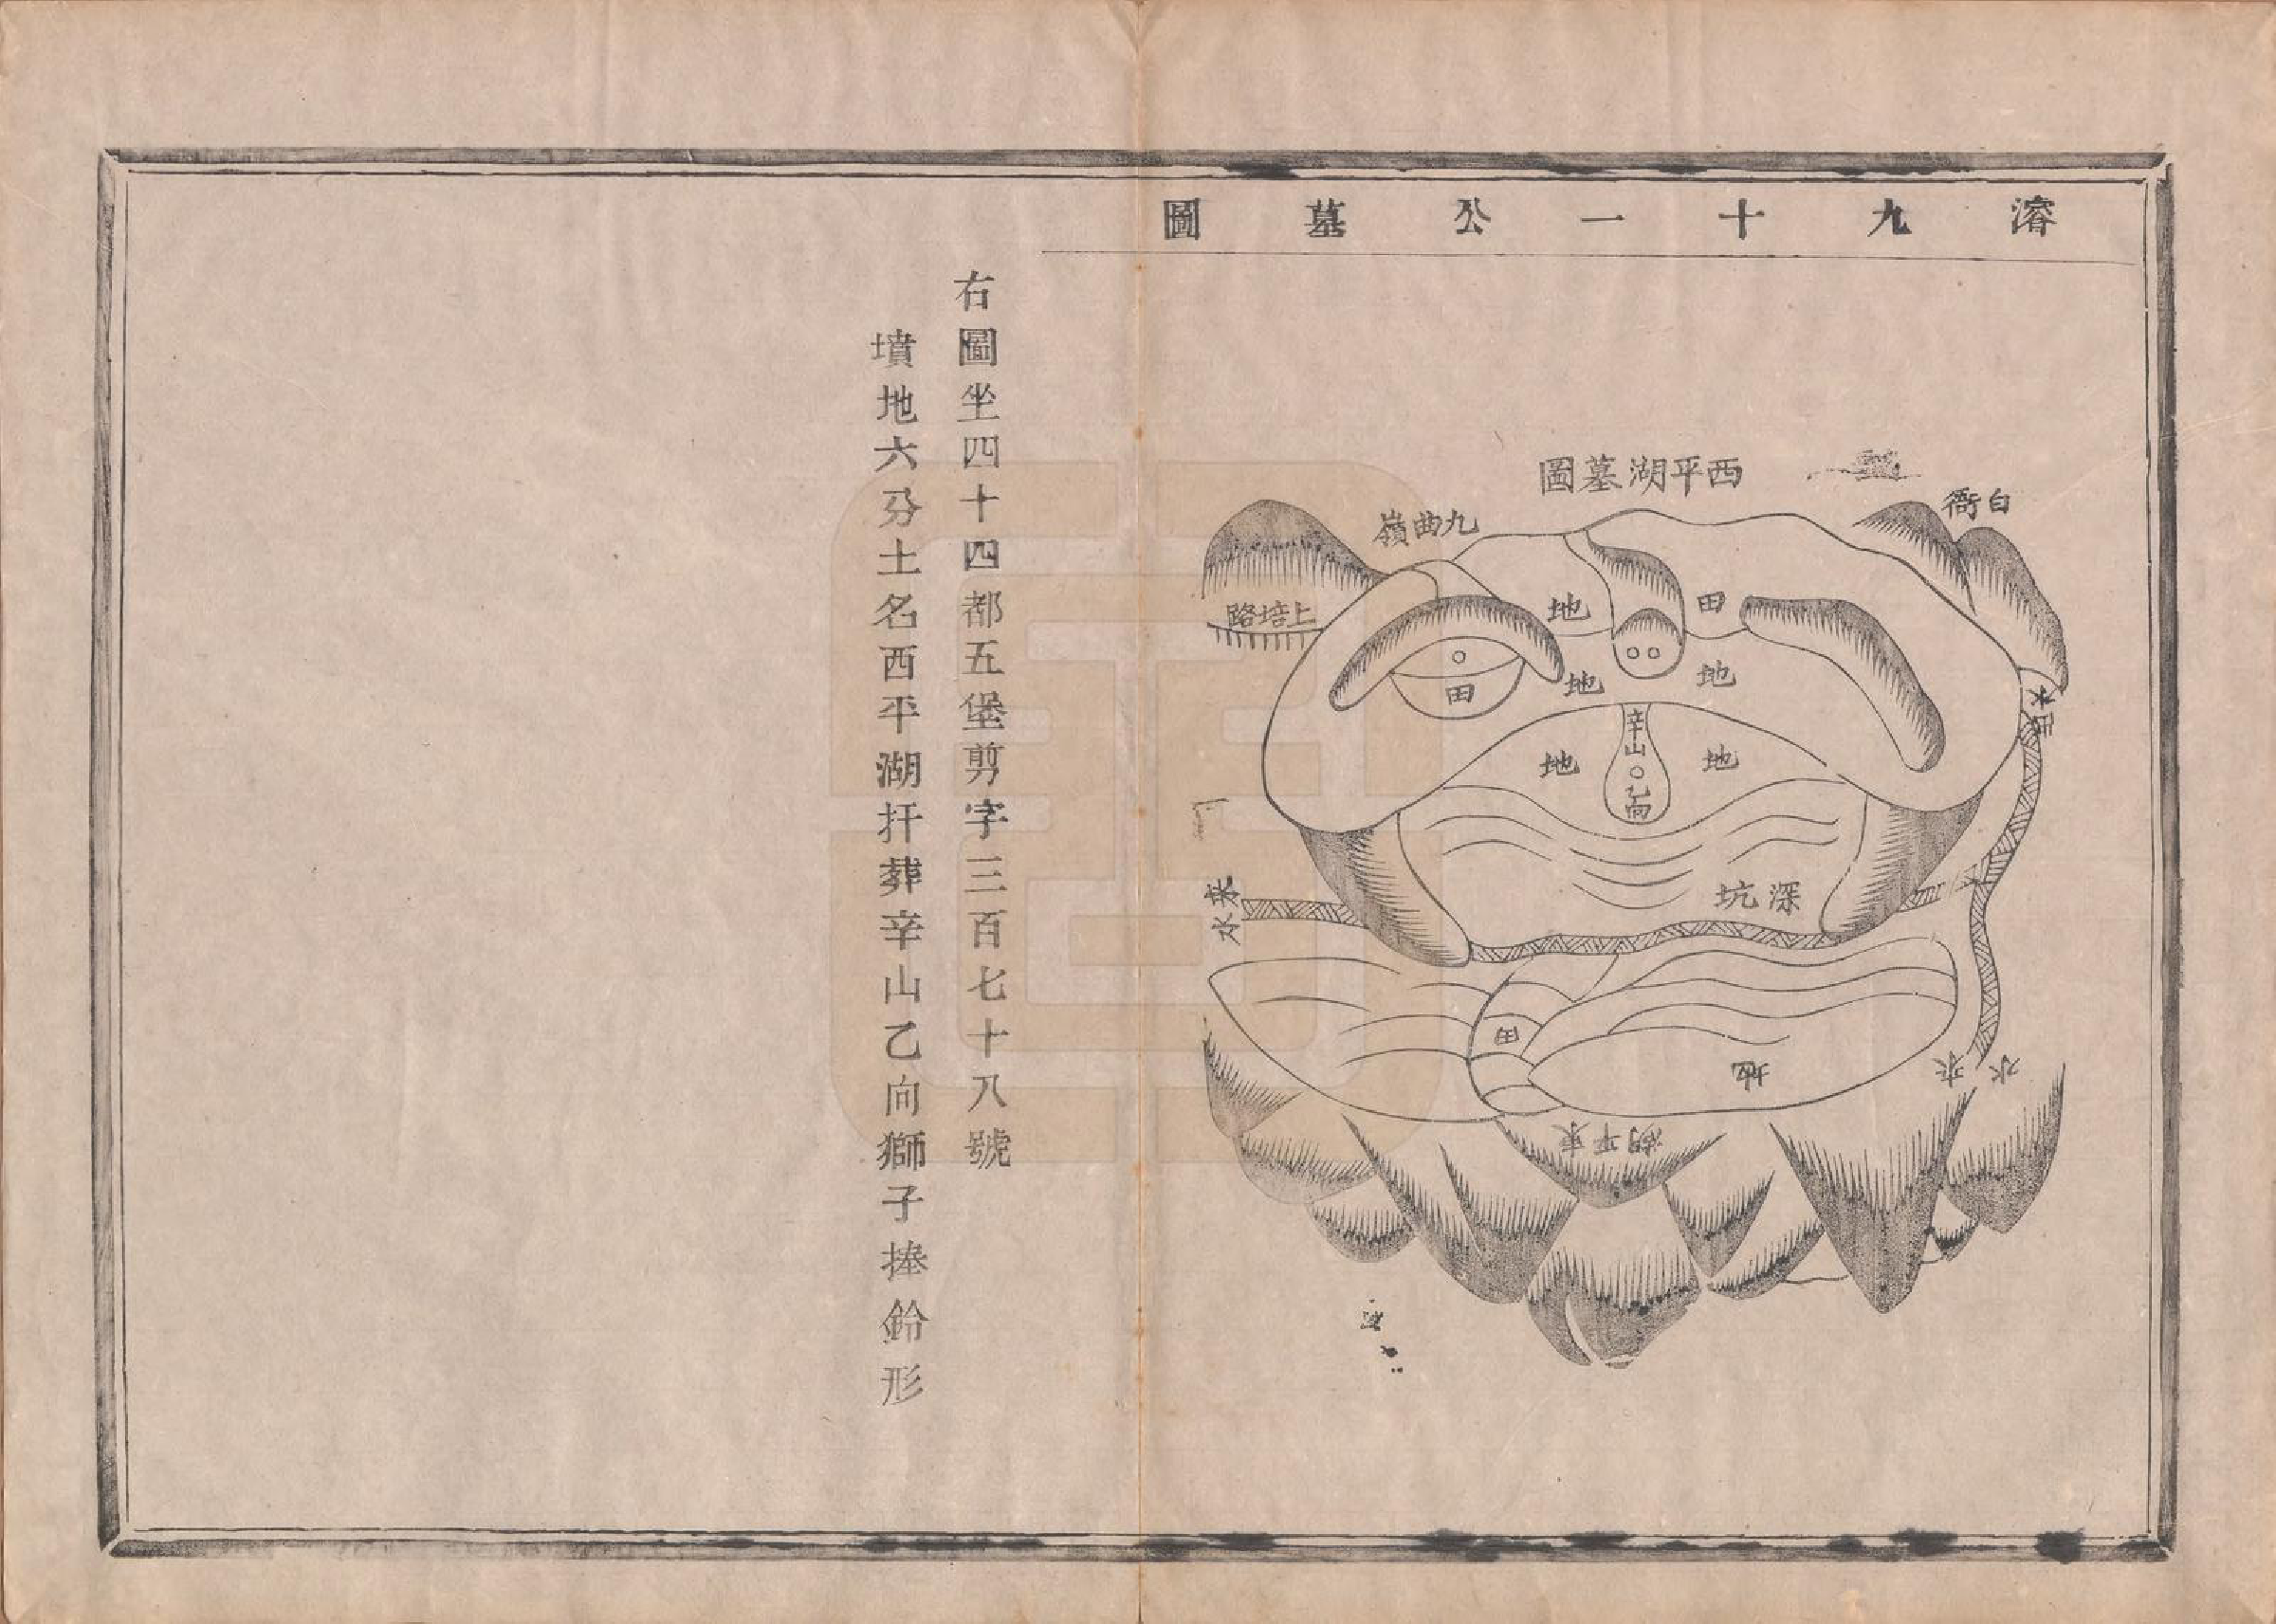 濬九十一公墓圖
西平湖墓圖
白衙
九曲嶺
上培路
地
田
地
地
田
辛山乙向
地
地
深坑
來水
田
地
水來
東平湖
右圖坐四十四都五堡剪字三百七十八號
墳地六分土名西平湖扦葬辛山乙向獅子捧鈴形